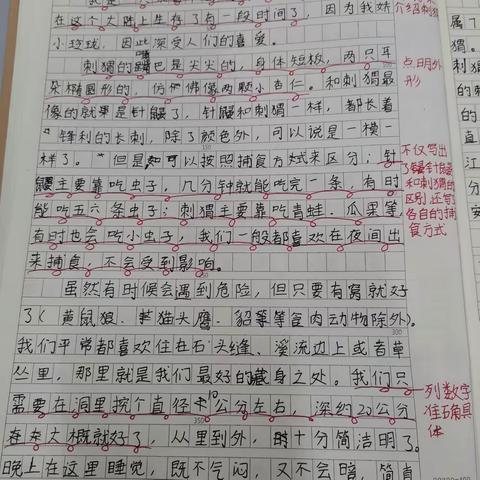 在这个大陆上生存了有一段时间了，因为我娇
小玲珑，因此深受人们的喜爱。
刺猬的嘴巴是尖尖的，身体短板，两只耳
朵椭圆形的，仿佛像两颗小杏仁。和刺猬最
像的就是针鼹了，针鼹和刺猬一样，都长着
锋利的长刺，除了颜色外，可以说是一模一
样了。但是可以按照捕食方式来区分：针
鼹主要靠吃虫子，几分钟就能吃完一条，有时
能吃五六条虫子；刺猬主要靠吃青蛙、瓜果等，
有时也会吃小虫子，我们一般都喜欢在夜间出
来捕食，不会受到影响。
虽然有时候会遇到危险，但只要有窝就好
了（黄鼠狼、猫头鹰、貂等等食肉动物除外）。
我们平常都喜欢住在石头缝、溪流边上或者草
丛里，那里就是我们最好的藏身之处。我们只
需要在洞里挖个直径10公分左右，深约20公分
大概就好了，从里到外，十分简洁明了。
晚上在这里睡觉，既不气闷，又不会暗，简直
介绍刺猬
点明外
形
不仅写出
了针鼹
和刺猬的
区别还写
各自的捕
食方式
列数字
准确具
体
300